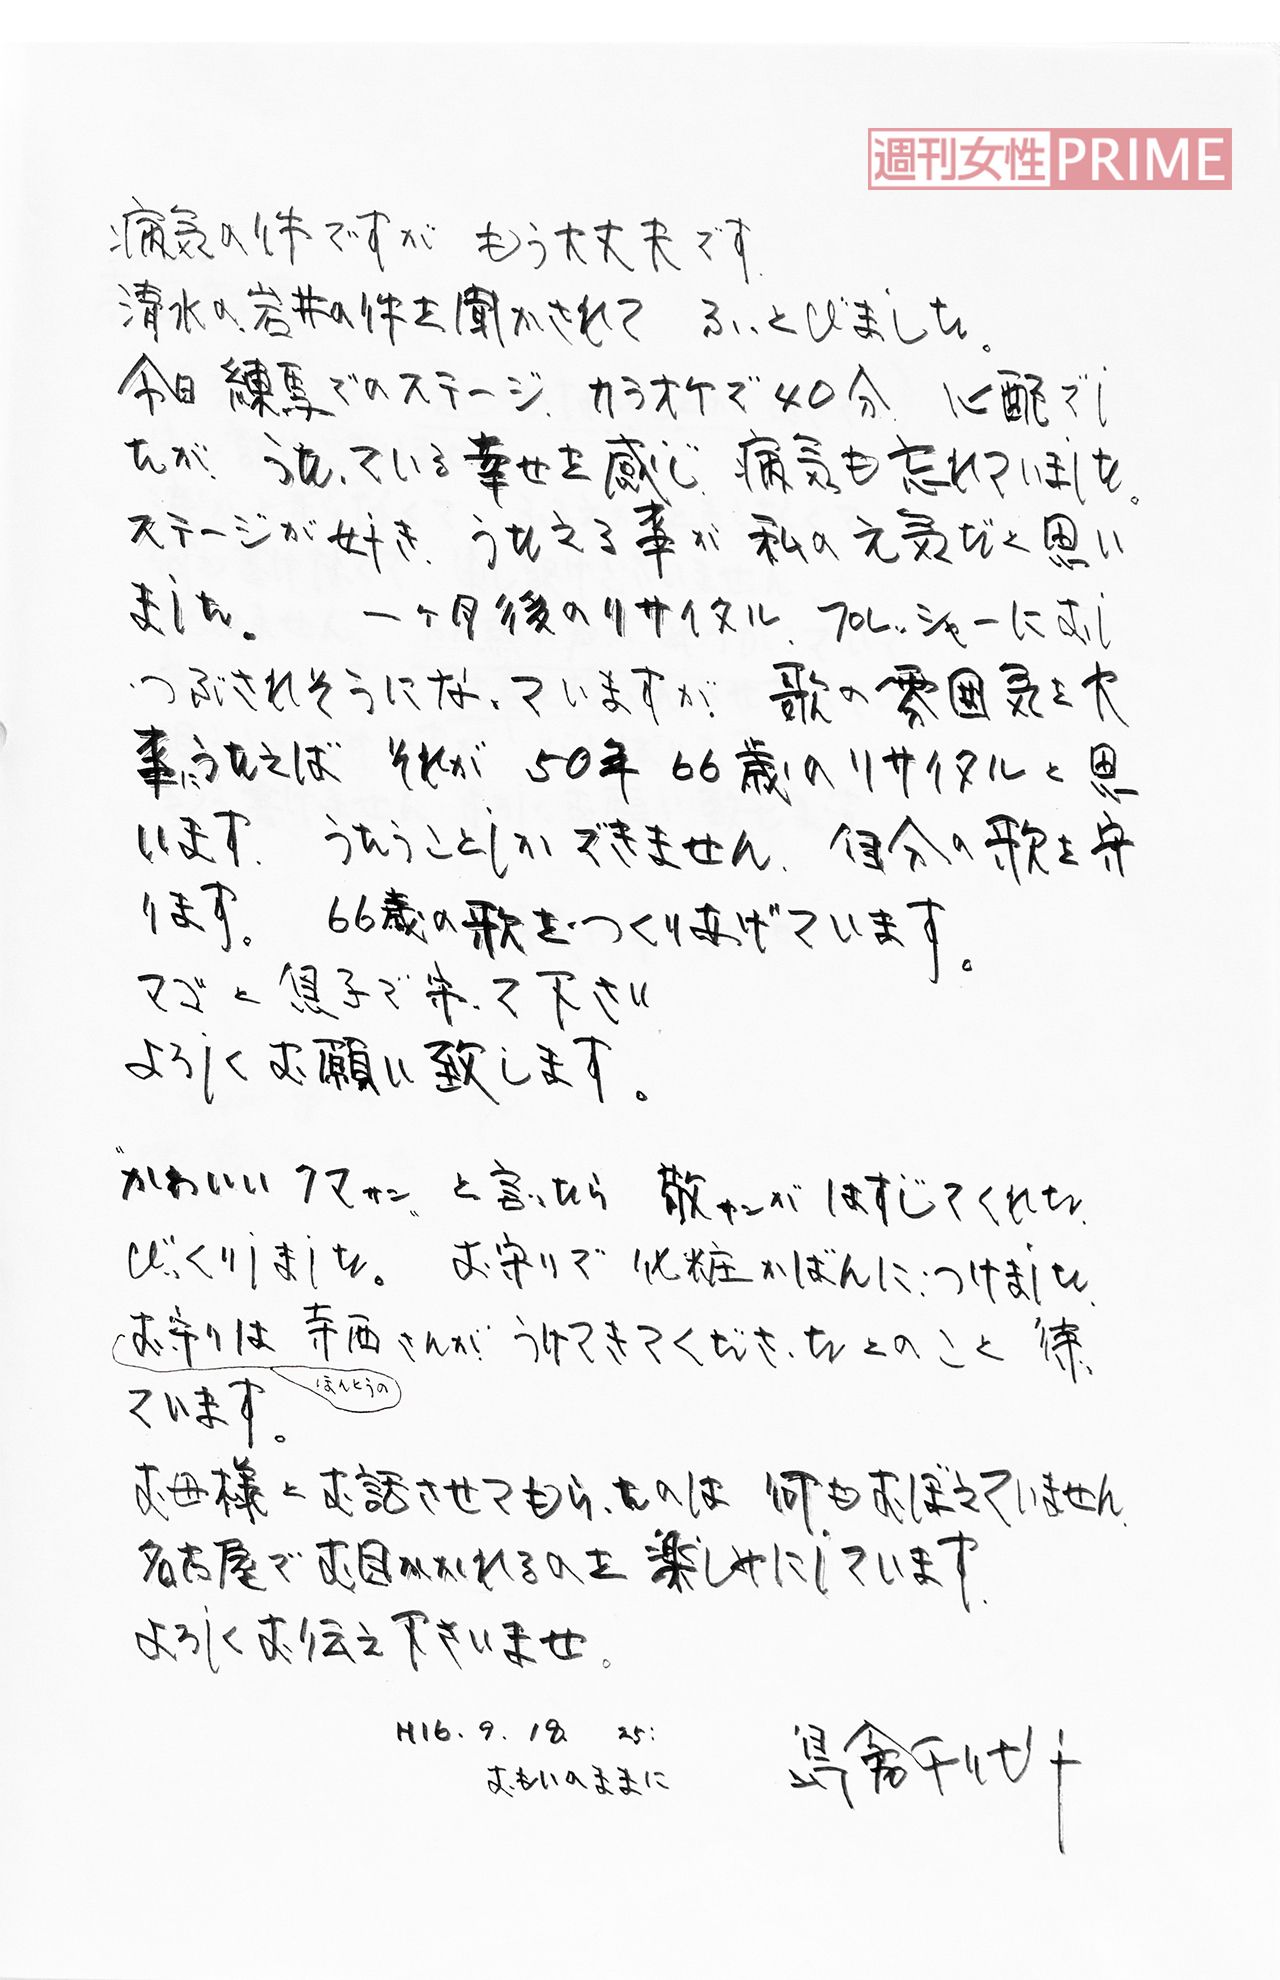 週刊女性PRIME
病気の件ですが もう大丈夫です.
清水の岩井の件を聞かされて ふっとびました。
今日練馬でのステージ、カラオケで40分、心配でし
たが、うたっている幸せを感じ、病気も忘れていました。
ステージが好き、うたえる事が私の元気だと思い
ました。 一ヶ月後のリサイタル、プレッシャーにおし
つぶされそうになっていますが、歌の雰囲気を大
事にうたえば それが 50年 66歳のリサイタルと思
います. うたうことしかできません、自分の歌を守
ります。 66歳の歌をつくりあげています。
マゴと息子で守って下さい
よろしくお願い致します。
"かわいいクマサン"と言ったら 敬サンがはずしてくれた、
びっくりしました。 お守りで 化粧かばんにつけました、
お守りは 寺西さんがうけてきてくださったとのこと 待っ
ほんとうの
ています。
お母様とお話させてもらったのは 何もおぼえていません、
名古屋でお目にかかれるのを楽しみにしています.
よろしくお伝え下さいませ。
H16.9.18 25:
おもいのままに
島倉千代子